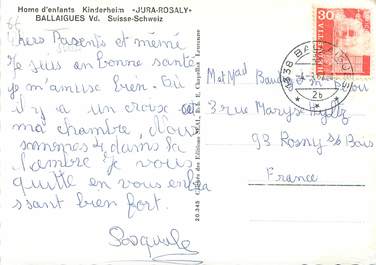 Home d'enfants Kinderheim «JURA-ROSALY»
BALLAIGUES Vd. Suisse-Schweiz
Chers Parents et mémé
Je suis en bonne santé
je m'amuse bien. Où
il y a un croix est
ma chambre, Nous
sommes 4 dans la
chambre Je vous
quitte en vous embra
ssant bien fort.
Pasquale
20.345 Clichés des Editions
HELVETIA
30
1338 BALLAIGUES
2b
M et Mad
3 rue Maryse
93 Rosny s/s Bois
France